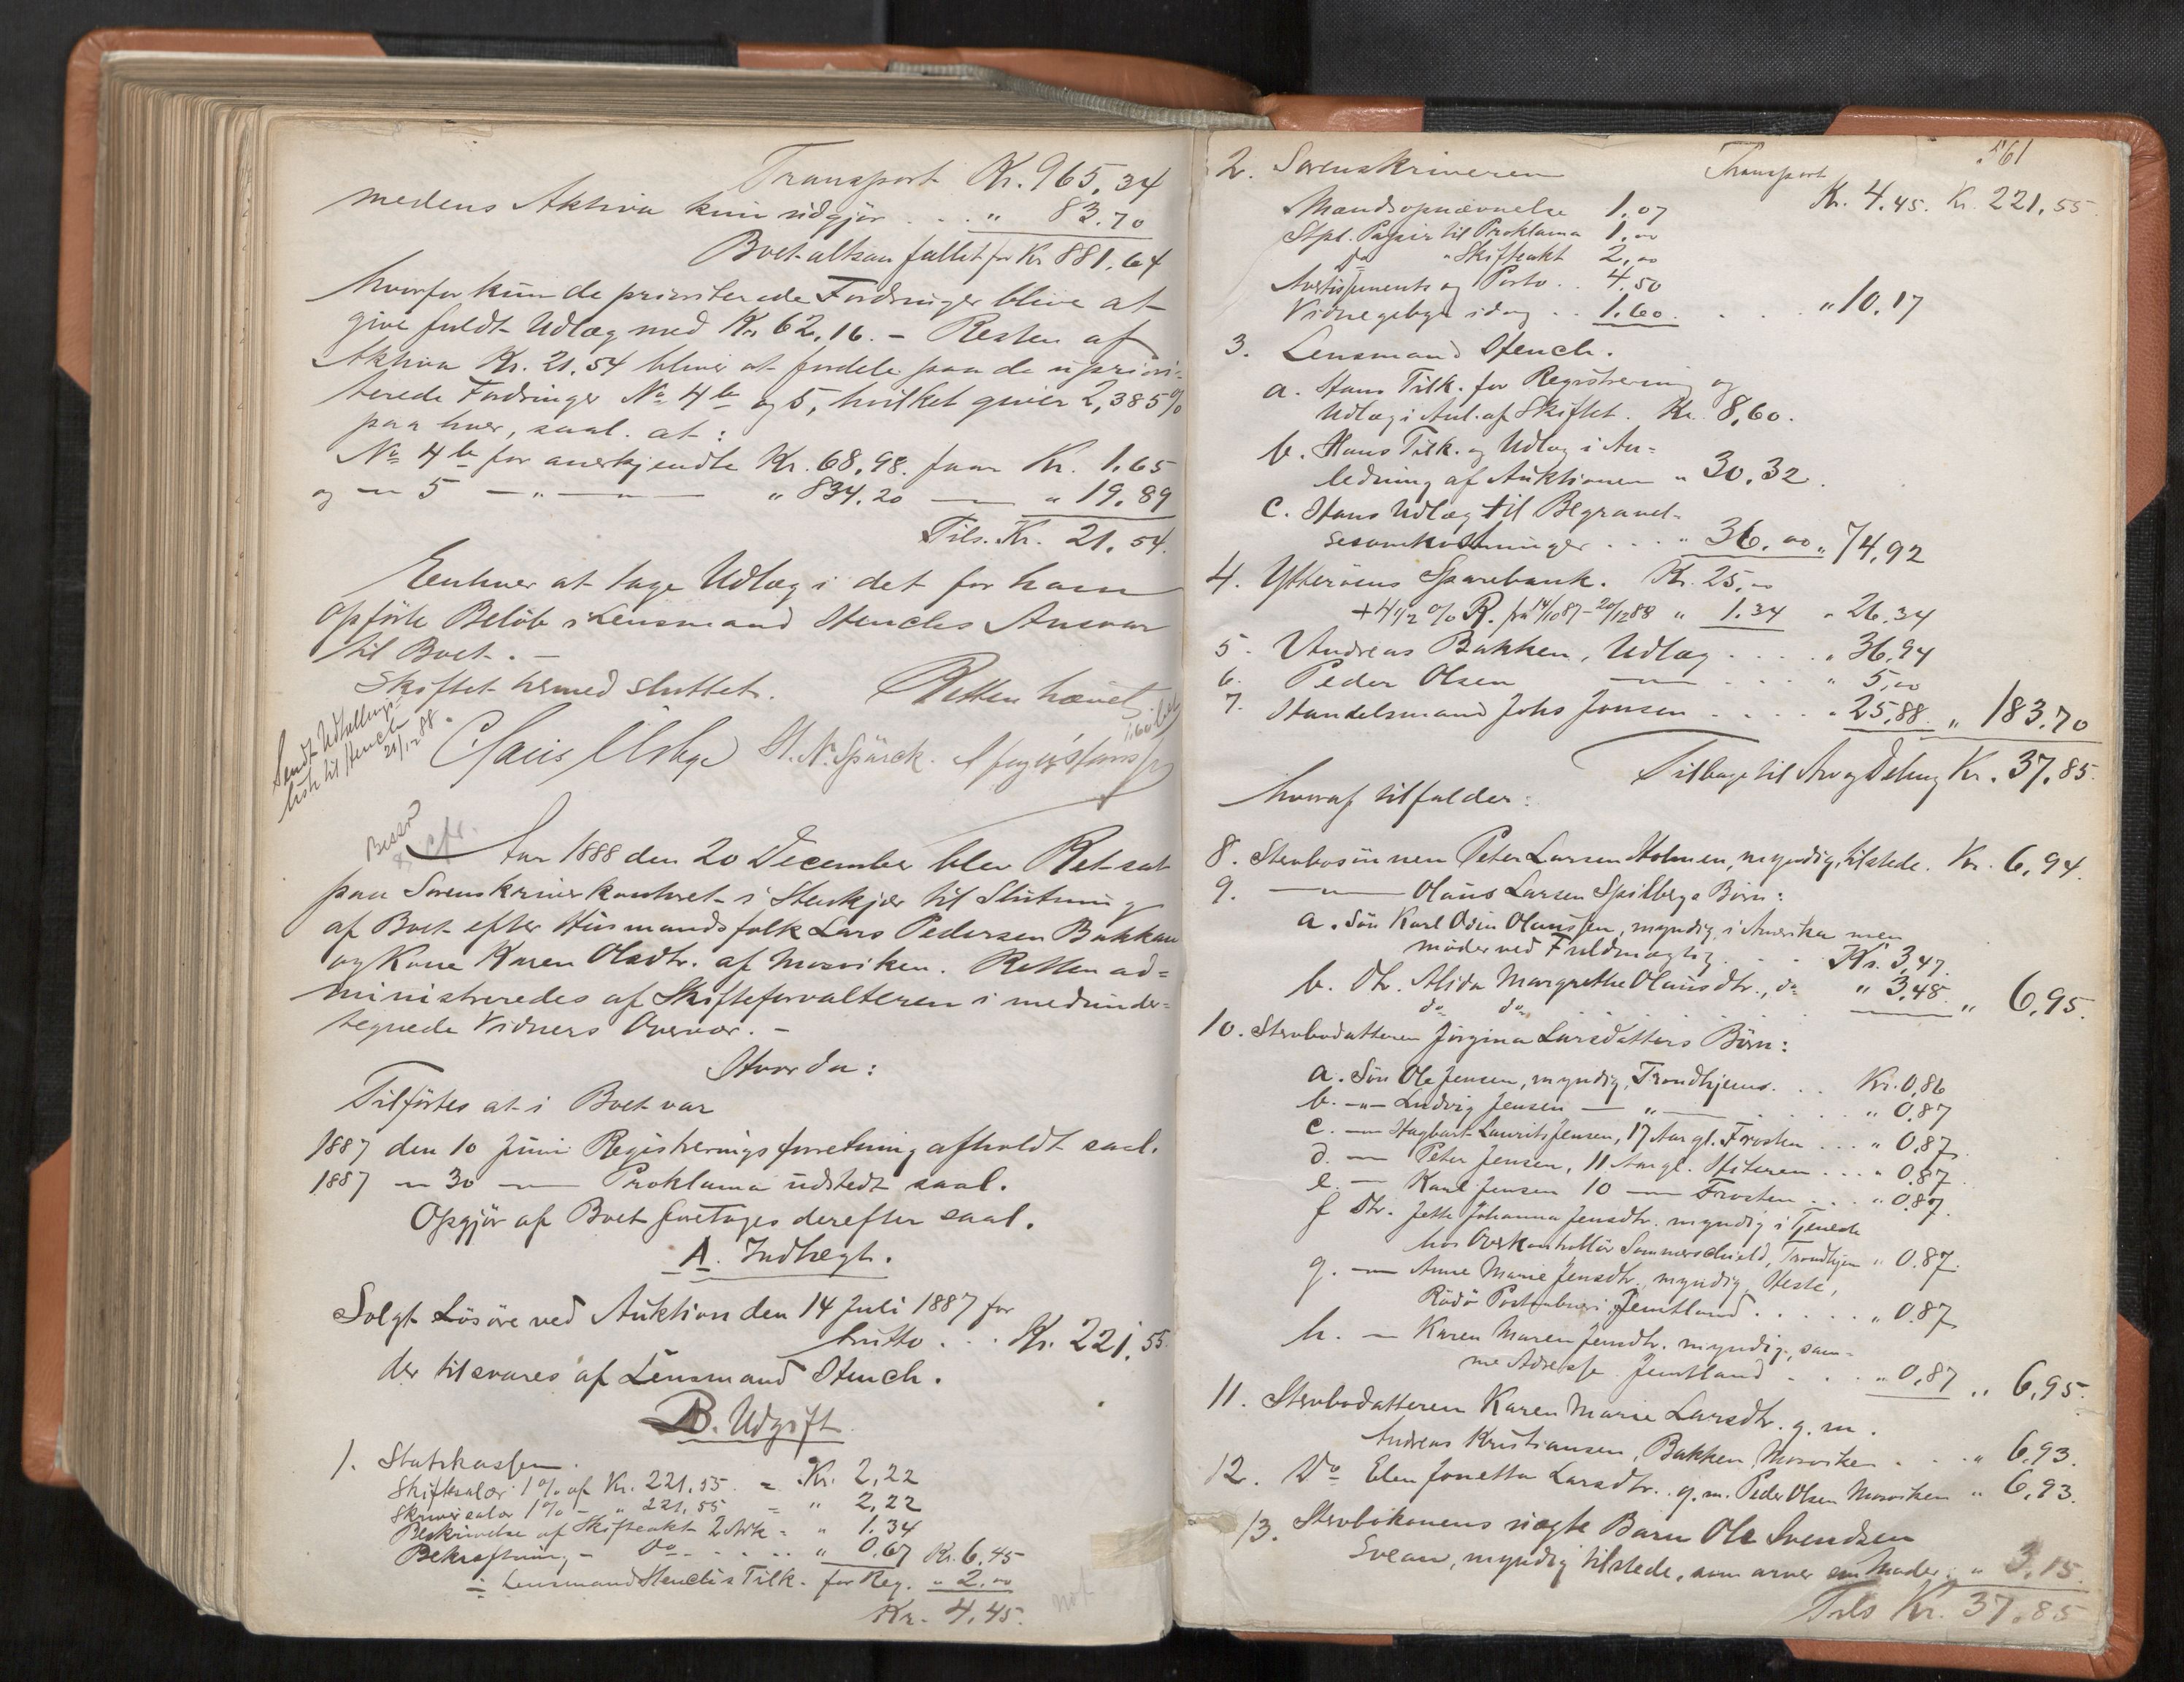 Transport Kr. 965,34
medens Aktiva kun udgjør . . . " 83.70
Boet altsaa fallit for Kr 881.64
hvorfor kun de prioriterede Fordringer blive at
give fuldt Udlæg med Kr. 62.16. - Resten af
Aktiva Kr. 21.54 bliver at fordele paa de upriori-
terede Fordringer No 4 b og 5, hvilket giver 2,385%
paa hver, saal. at:
No 4 b for anerkjendte Kr. 68,98. faar Kr. 1.65
og — 5 — " — " 834.20 — " 19.89
Tils. Kr. 21.54.
Enhver at tage Udlæg i det for ham
opførte Beløb i Lensmand Stenchs Ansvar
til Boet. —
Skiftet hermed sluttet. Retten hævet
Sendt Udlodnings-
liste til Stench
21/12 88.
H. N. Spärck.
Besør
cfr.
Aar 1888 den 20 December blev Ret sat
paa Sorenskriverkontoret i Stenkjær til Slutning
af Boet efter Husmandsfolk Lars Pedersen Bakkan
og Kone Karen Olsdtr. af Mosviken. Retten ad=
ministreredes af Skifteforvalteren i medunder=
tegnede Vidners Overvær. —
Hvorda:
Tilførtes at i Boet var
1887 den 10 Juni Registreringsforretning afholdt saal.
1887 — 30 — Proklama udstedt saal.
Opgjør af Boet foretages derefter saal.
A. Indtægt.
Solgt Løsøre ved Auktion den 14 Juli 1887 for
brutto . . . Kr. 221.55
der tilsvares af Lensmand Stench.
B. Udgift
1. Statskassen.
Skiftesalær 1% af Kr. 221,55. = Kr. 2,22
Skriversalær 1% - " 221,55 = " 2,22
Beskrivelse af Skifteakt 2 Ark = " 1.34
Bekræftning - Do - . . . . " 0.67 Kr. 6,45
÷ Lensmand Stenchs Tilk. for Reg. " 2.00
Kr. 4,45.
561
2. Sorenskriveren Transport
Kr. 4.45. Kr. 221,55
Mandsopnævnelse 1.07
Stpl. Papir til Proklama 1.00
do " Skifteakt 2,00
Avertissements og Porto . . 4.50
Vidnegebyr idag . . 1.60. . . . " 10.17
3. Lensmand Stench.
a. Hans Tilk. for Registrering og
Udlæg i Anl. af Skiftet. Kr. 8,60.
b. Hans Tilk. og Udlæg i An=
ledning af Auktionen " 30.32.
c. Hans Udlæg til Begravel-
sesomkostninger . . . . " 36.00 " 74,92
4. Ytterøens Sparebank. Kr. 25,00
+ 4 1/2 % R. fra 14/10 87 - 20/12 88 " 1.34 " 26.34
5. Andreas Bakken, Udlæg . . . . " 36,94
6. Peder Olsen — . . . " 5,00
7. Handelsmand Johs Jonsen . . . . . " 25,88. " 183.70
Tilbage til Arv og Deling Kr. 37.85.
hvoraf tilfalder:
8. Stervbosønnen Peter Larsen Holmen, myndig, tilstede. Kr. 6,94.
9. — Olaus Larsen Spilbergs Børn:
a. Søn Karl Odin Olaussen, myndig, i Amerika men
møder ved Fuldmægtig. . . Kr. 3,47.
b. Dtr. Alida Margrethe Olausdtr., do " 3.48.
do do . . . . . . . " 6,95.
10. Stervbodatteren Jørgina Larsdatters Børn:
a. Søn Ole Jensen, myndig, Trondhjem. . . Kr. 0,86
b. —"— Ludvig Jensen — " — . . . . . " 0.87
c. — Hagbart Laurits Jensen, 17 Aar gl. Frosten . . . " 0.87.
d. — Peter Jensen, 11 Aar gl. . . . " 0.87.
e. — Karl Jensen 10 — Frosten . . . " 0.87.
f Dtr. Jette Johanna Jensdtr. myndig i Tjeneste
hos Overkontrollør Sommerschield, Trondhjem " 0.87.
g. — Anne Marie Jensdtr., myndig,
Rödö i Jemtland . . . . . " 0.87
h. — Karen Maren Jensdtr. myndig, sam=
me Adresse Jemtland . . . " 0,87 " 6,95.
11. Stervbodatteren Karen Marie Larsdtr. g. m.
Andreas Kristiansen, Bakken, Mosviken . . . " 6.93.
12. Do Elen Jonetta Larsdtr. g. m. Peder Olsen Mosviken " 6,93.
13. Stervbokonens uægte Barn Ole Svendsen
Svean, myndig tilstede, som arver sin Moder. " 3,15.
Tils Kr. 37.85